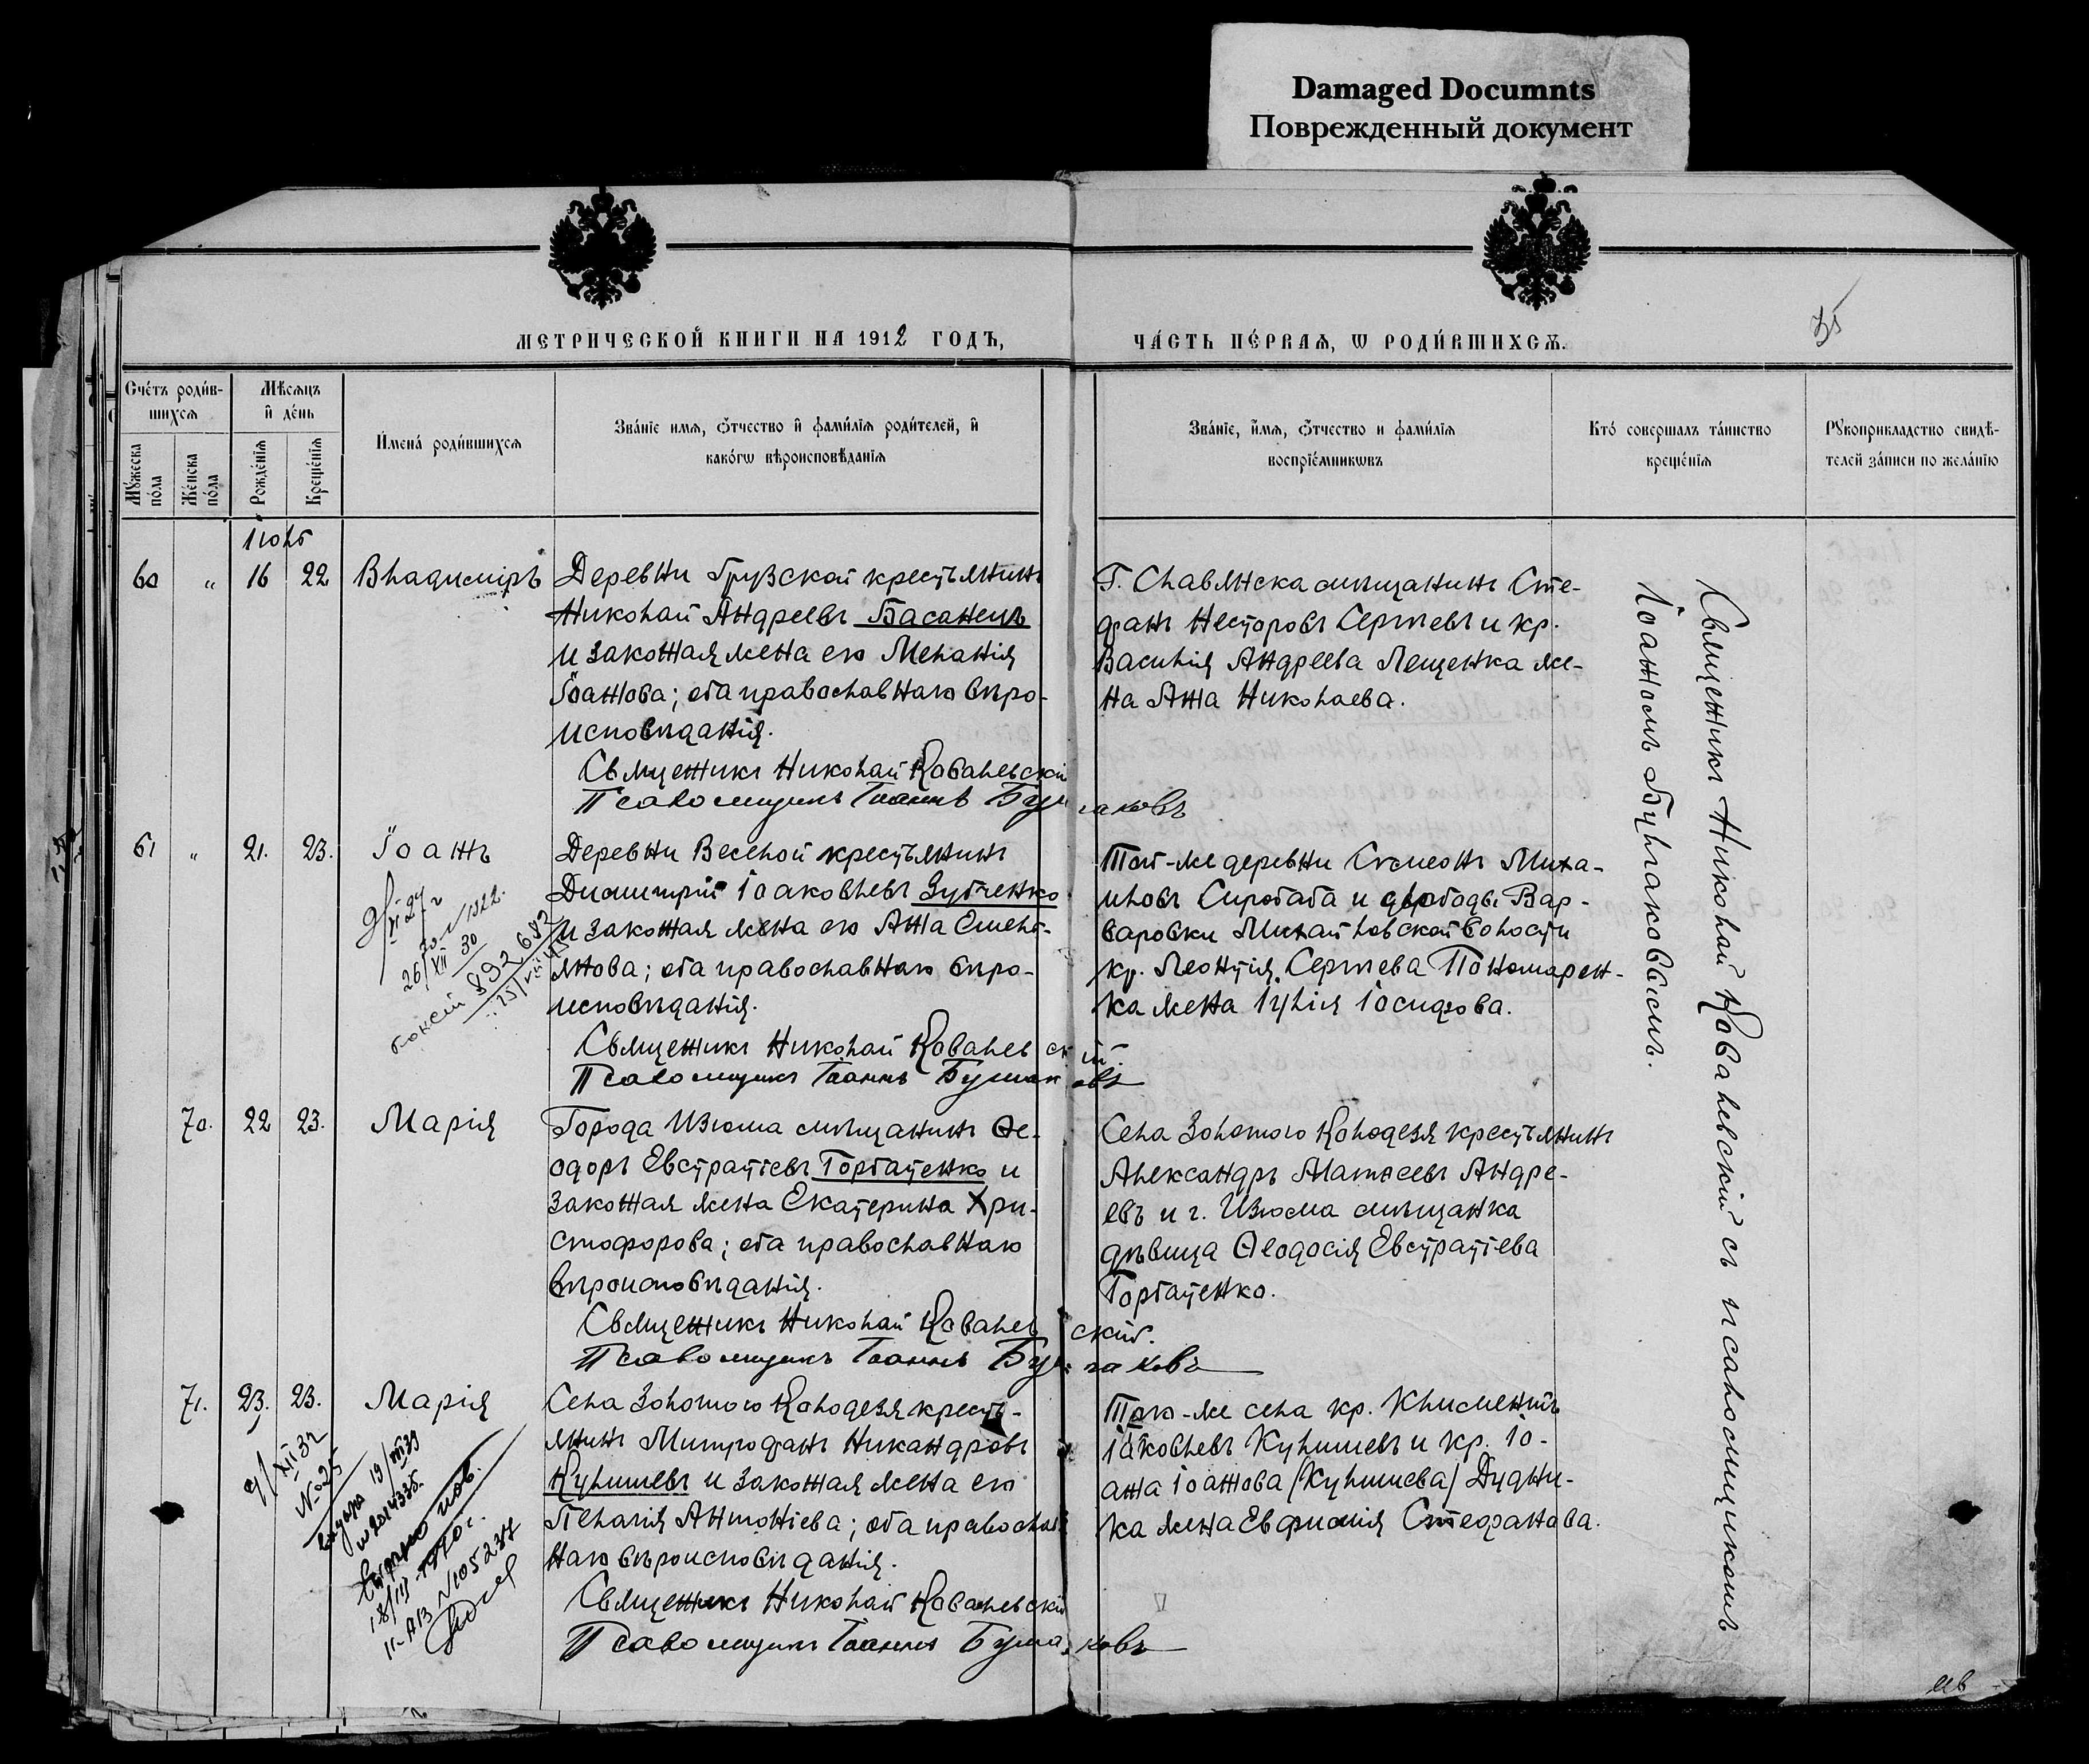 Damaged Documnts
Поврежденный документ
МЕТРИЧЕСКОЙ КНИГИ НА 1912 ГОДЪ,
ЧА́СТЬ ПЕ́РВАѦ, Ѡ РОДИ́ВШИХСѦ.
35
Сче́тъ роди́в-
шихсѧ
Мꙋ́жеска по́ла
Же́нска по́ла
Мѣ́сѧцъ
и҆ де́нь
Рожде́нїѧ
Креще́нїѧ
И҆мена́ роди́вшихсѧ
Зва́нїе имѧ, ѻ҆́тчество и҆ фами́лїѧ роди́телей, и҆
како́гѡ вѣроисповѣ́данїѧ
Зва́нїе, и҆́мѧ, ѻ҆́тчество и фами́лїѧ
воспрїе́мникѡвъ
Кто́ соверша́лъ та́инство
креще́нїѧ
Рꙋкоприкла́дство свидѣ́-
телей за́писи по жела́нїю
Іюль
60 " 16 22 Владиміръ
Деревни Грузской крестьянинъ
Николай Андреевъ Басанецъ
и законная жена его Меланія
Іоаннова; оба православнаго вѣро-
исповѣданія.
Священникъ Николай Ковалевскій
Псаломщикъ Іоаннъ Булгаковъ
Г. Славянска мѣщанинъ Сте-
фанъ Несторовъ Сергѣевъ и кр.
Василія Андреева Лещенка же-
на Анна Николаева.
61 " 21. 23. Іоаннъ
Деревни Веселой крестьянинъ
Димитрій Іоаковлевъ Зубченко
и законная жена его Анна Емель-
янова; оба православнаго вѣро-
исповѣданія.
Священникъ Николай Ковалевскій.
Псаломщикъ Іоаннъ Булгаковъ
Той-же деревни Симеонъ Миха-
иловъ Сиробаба и слободы Вар-
варовки Михайловской волости
кр. Леонтія Сергѣева Пономарен-
ка жена Іулія Іосифова.
892682
70. 22 23. Марія
Города Изюма мѣщанинъ Ѳе-
одоръ Евстратіевъ Горбатенко и
законная жена Екатерина Хри-
стофорова; оба православнаго
вѣроисповѣданія.
Священникъ Николай Ковалевскій.
Псаломщикъ Іоаннъ Булгаковъ
Села Золотого Колодезя крестьянинъ
Александръ Матѳеевъ Андре-
евъ и г. Изюма мѣщанка
дѣвица Ѳеодосія Евстратіева
Горбатенко.
71. 23. 23. Марія
Села Золотого Колодезя кресть-
янинъ Митрофанъ Никандровъ
Кулишевъ и законная жена его
Пелагія Антоніева; оба православ
наго вѣроисповѣданія.
Священникъ Николай Ковалевскій
Псаломщикъ Іоаннъ Булгаковъ
Того-же села кр. Климентъ
Іаковлевъ Кулишевъ и кр. Іо-
анна Іоаннова (Кулишева) Дудни-
ка жена Евфимія Стефанова.
Священникъ Николай Ковалевскій съ псаломщикомъ
Іоанномъ Булгаковымъ.